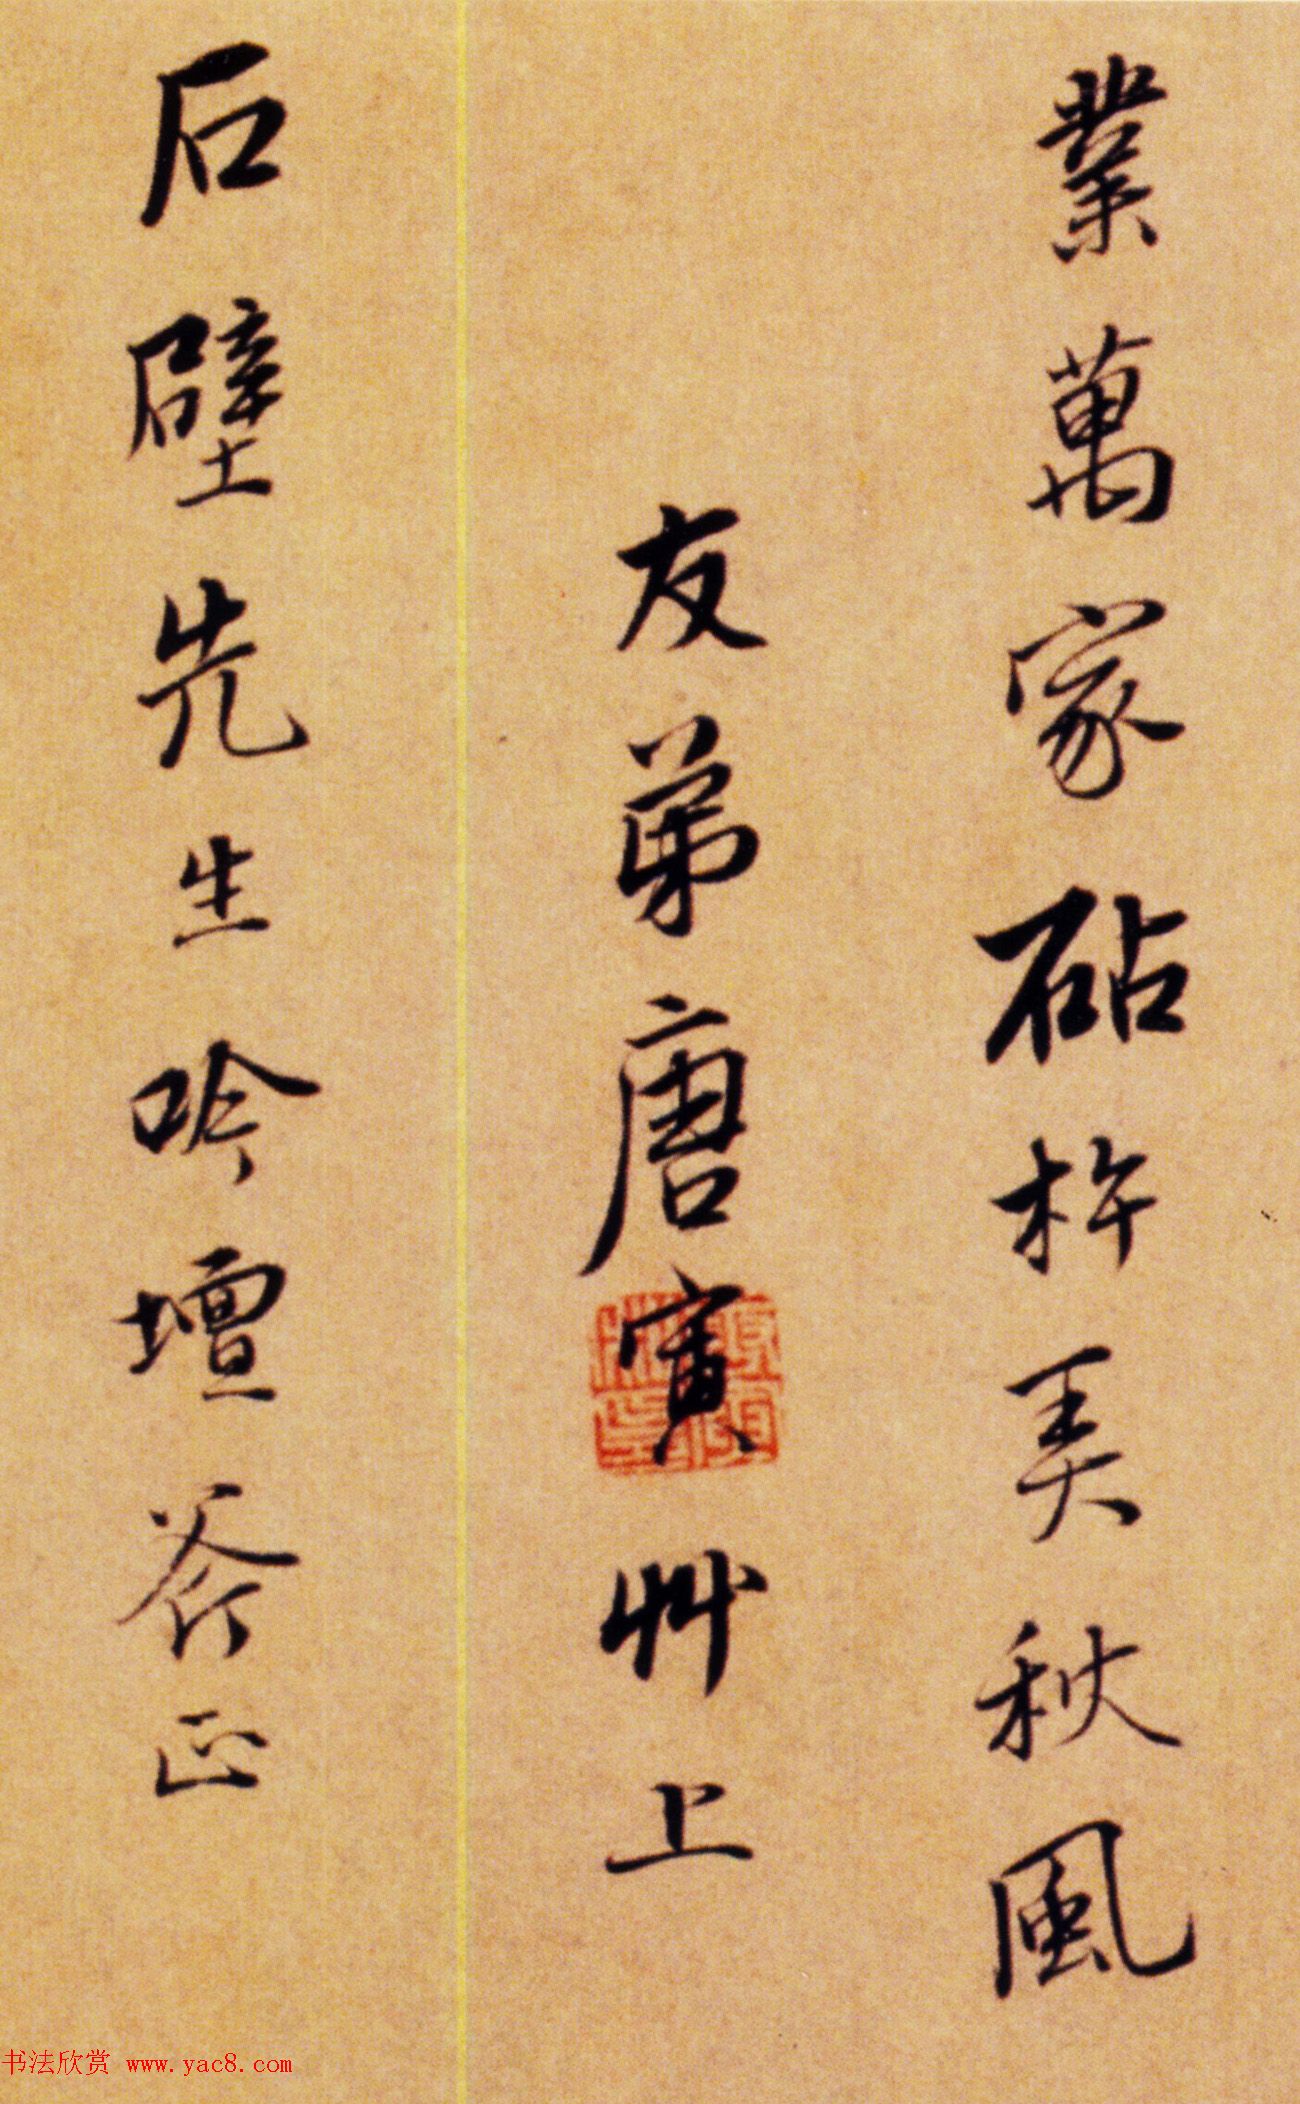 業萬家砧杵美秋風
友弟唐寅艸上
石壁先生吟壇斧正
书法欣赏 www.yac8.com